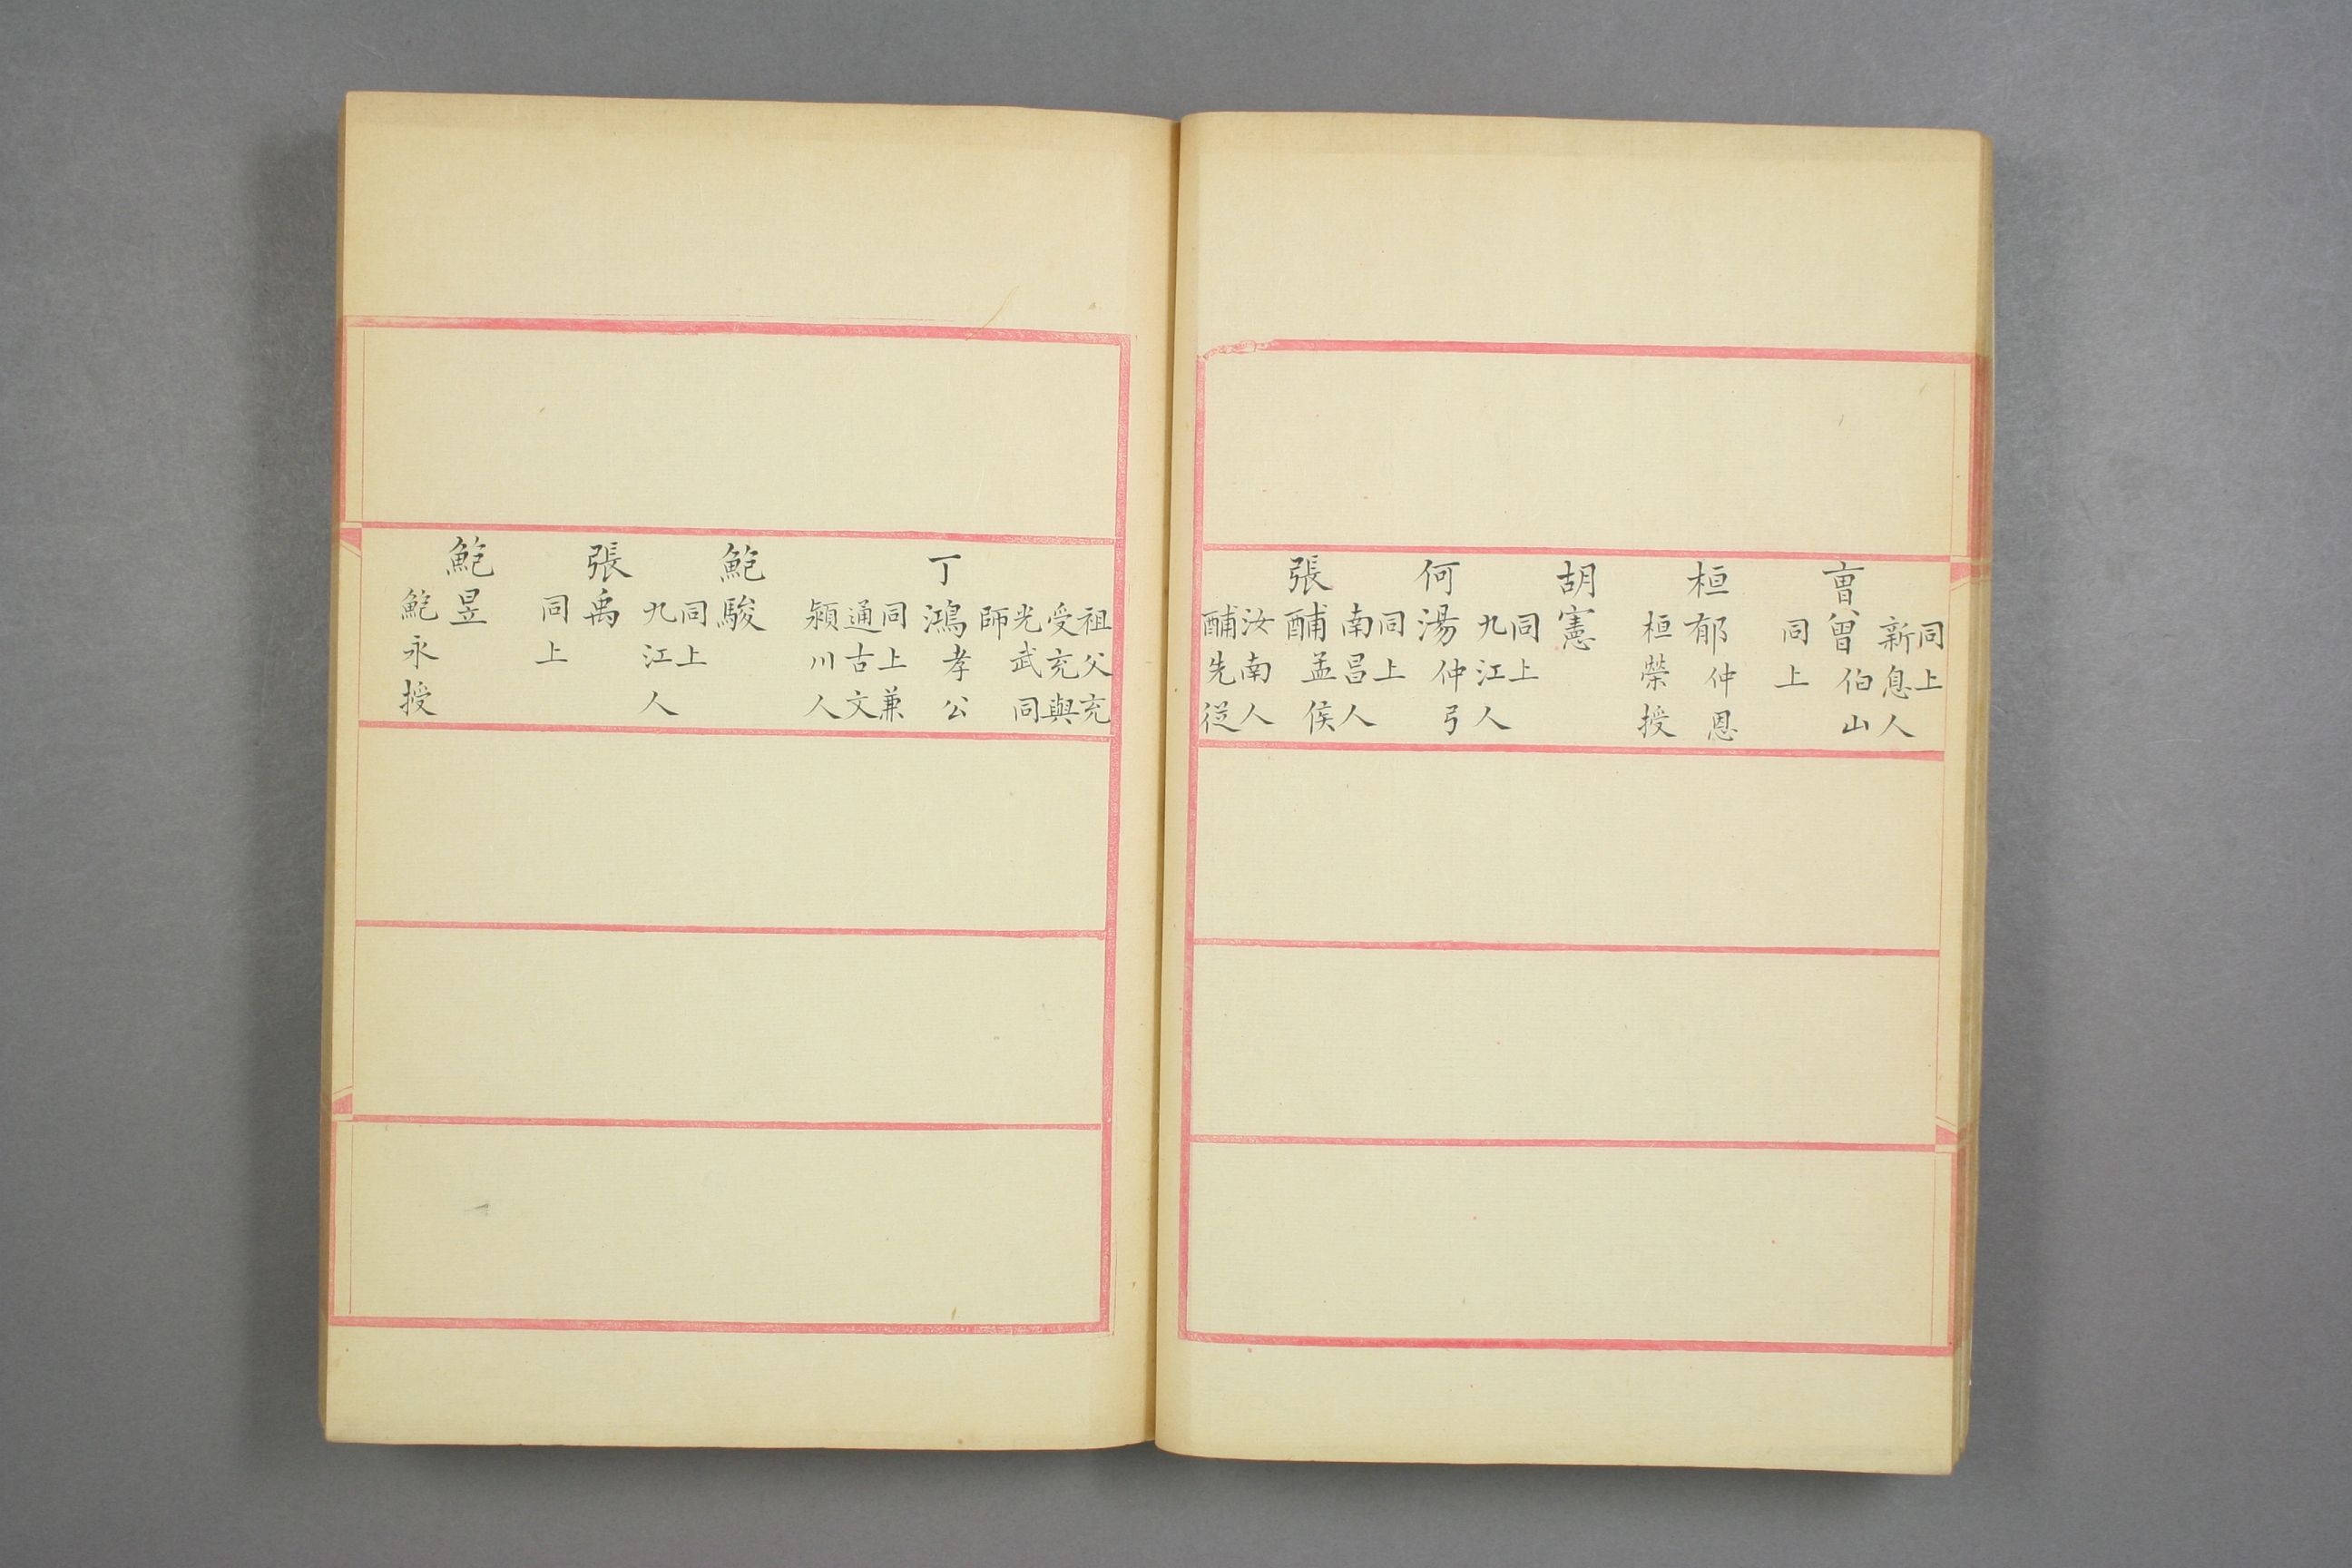 同上
新息人
曹曾伯山
同上
桓郁仲恩
桓榮授
胡憲
同上
九江人
何湯仲弓
同上
南昌人
張酺孟侯
汝南人
酺先從
祖父充
受充與
光武同
師
丁鴻孝公
同上兼
通古文
潁川人
鮑駿
同上
九江人
張禹
同上
鮑昱
鮑永授